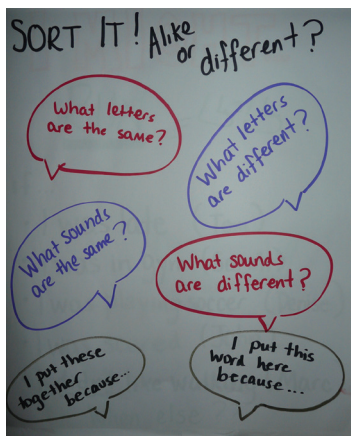 SORT IT! Alike
or different?
What letters
are the same?
What letters
are different?
What sounds
are the same?
What sounds
are different?
I put these
together
because...
I put this
word here
because...